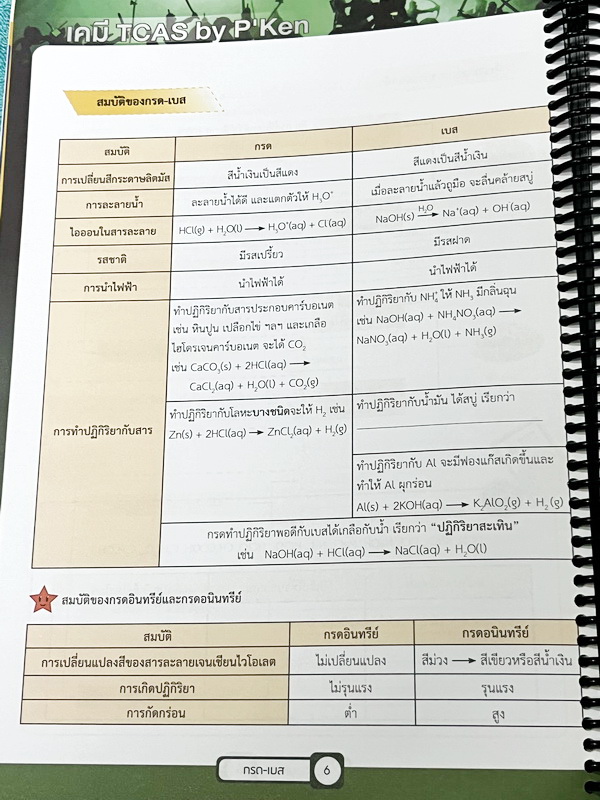 เคมี TCAS by P'Ken
สมบัติของกรด-เบส
สมบัติ กรด เบส
การเปลี่ยนสีกระดาษลิตมัส สีน้ำเงินเป็นสีแดง สีแดงเป็นสีน้ำเงิน
การละลายน้ำ ละลายน้ำได้ดี และแตกตัวให้ H₃O⁺ เมื่อละลายน้ำแล้วถูมือ จะลื่นคล้ายสบู่
ไอออนในสารละลาย HCl(g) + H₂O(l) ⟶ H₃O⁺(aq) + Cl⁻(aq) NaOH(s) H₂O⟶ Na⁺(aq) + OH⁻(aq)
รสชาติ มีรสเปรี้ยว มีรสฝาด
การนำไฟฟ้า นำไฟฟ้าได้ นำไฟฟ้าได้
การทำปฏิกิริยากับสาร
ทำปฏิกิริยากับสารประกอบคาร์บอเนต
เช่น หินปูน เปลือกไข่ ฯลฯ และเกลือ
ไฮโดรเจนคาร์บอเนต จะได้ CO₂
เช่น CaCO₃(s) + 2HCl(aq) ⟶
CaCl₂(aq) + H₂O(l) + CO₂(g)
ทำปฏิกิริยากับ NH₄⁺ ให้ NH₃ มีกลิ่นฉุน
เช่น NaOH(aq) + NH₄NO₃(aq) ⟶
NaNO₃(aq) + H₂O(l) + NH₃(g)
ทำปฏิกิริยากับโลหะบางชนิดจะให้ H₂ เช่น
Zn(s) + 2HCl(aq) ⟶ ZnCl₂(aq) + H₂(g)
ทำปฏิกิริยากับน้ำมัน ได้สบู่ เรียกว่า
ทำปฏิกิริยากับ Al จะมีฟองแก๊สเกิดขึ้นและ
ทำให้ Al ผุกร่อน
Al(s) + 2KOH(aq) ⟶ K₂AlO₂(g) + H₂(g)
กรดทำปฏิกิริยาพอดีกับเบสได้เกลือกับน้ำ เรียกว่า “ปฏิกิริยาสะเทิน”
เช่น NaOH(aq) + HCl(aq) ⟶ NaCl(aq) + H₂O(l)
สมบัติของกรดอินทรีย์และกรดอนินทรีย์
สมบัติ กรดอินทรีย์ กรดอนินทรีย์
การเปลี่ยนแปลงสีของสารละลายเจนเชียนไวโอเลต ไม่เปลี่ยนแปลง สีม่วง ⟶ สีเขียวหรือสีน้ำเงิน
การเกิดปฏิกิริยา ไม่รุนแรง รุนแรง
การกัดกร่อน ต่ำ สูง
กรด-เบส 6